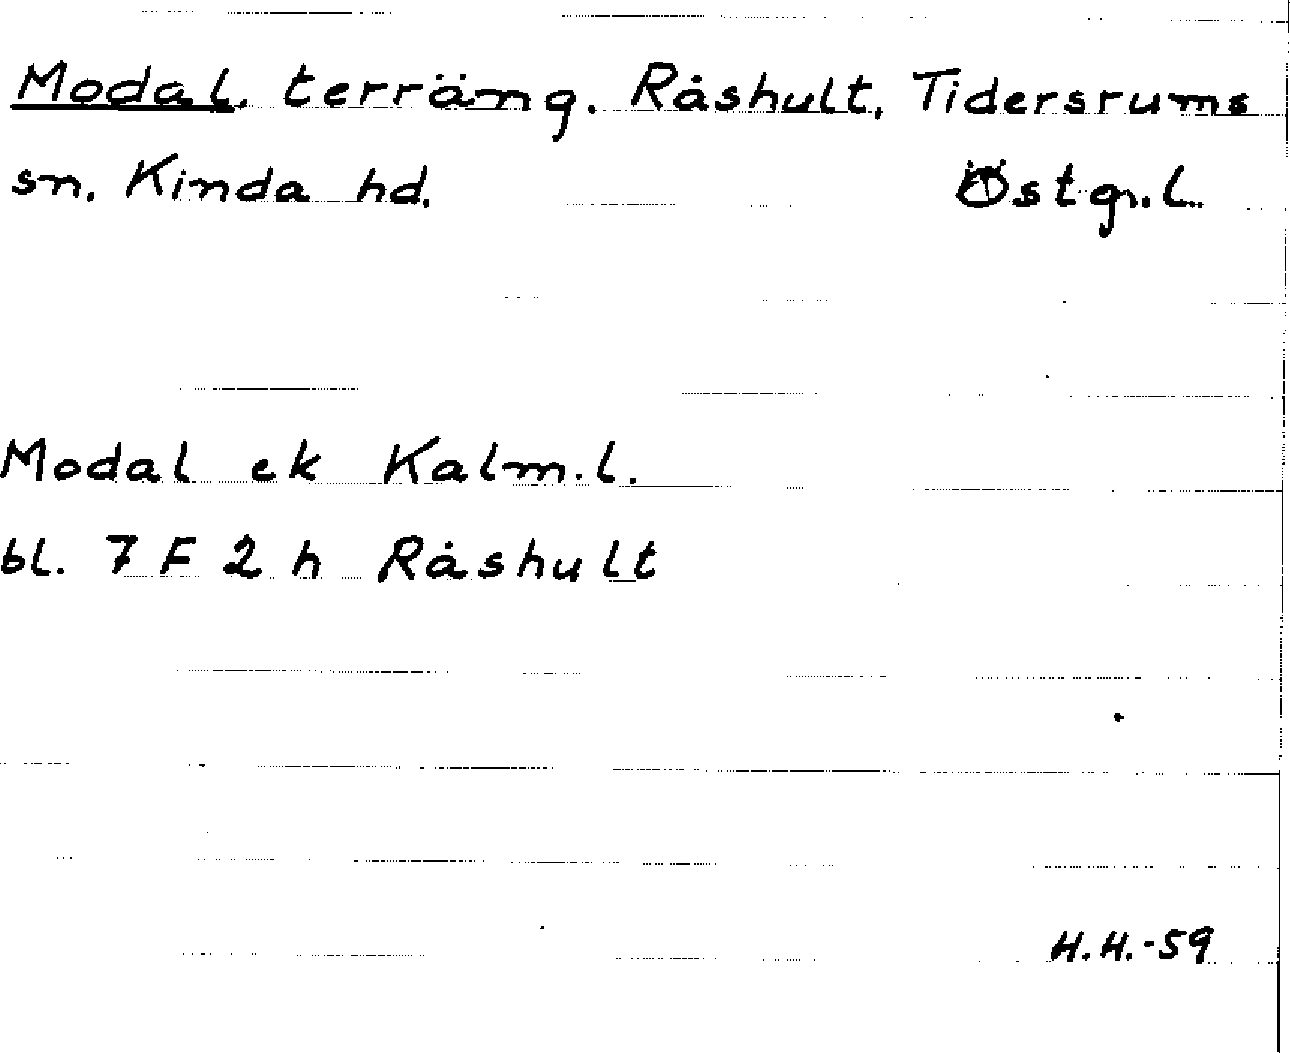 Modal, terräng. Råshult, Tidersrums
sn. Kinda hd. Östg.l.
Modal ek Kalm.l.
bl. 7 F 2 h Råshult
H.H.-59